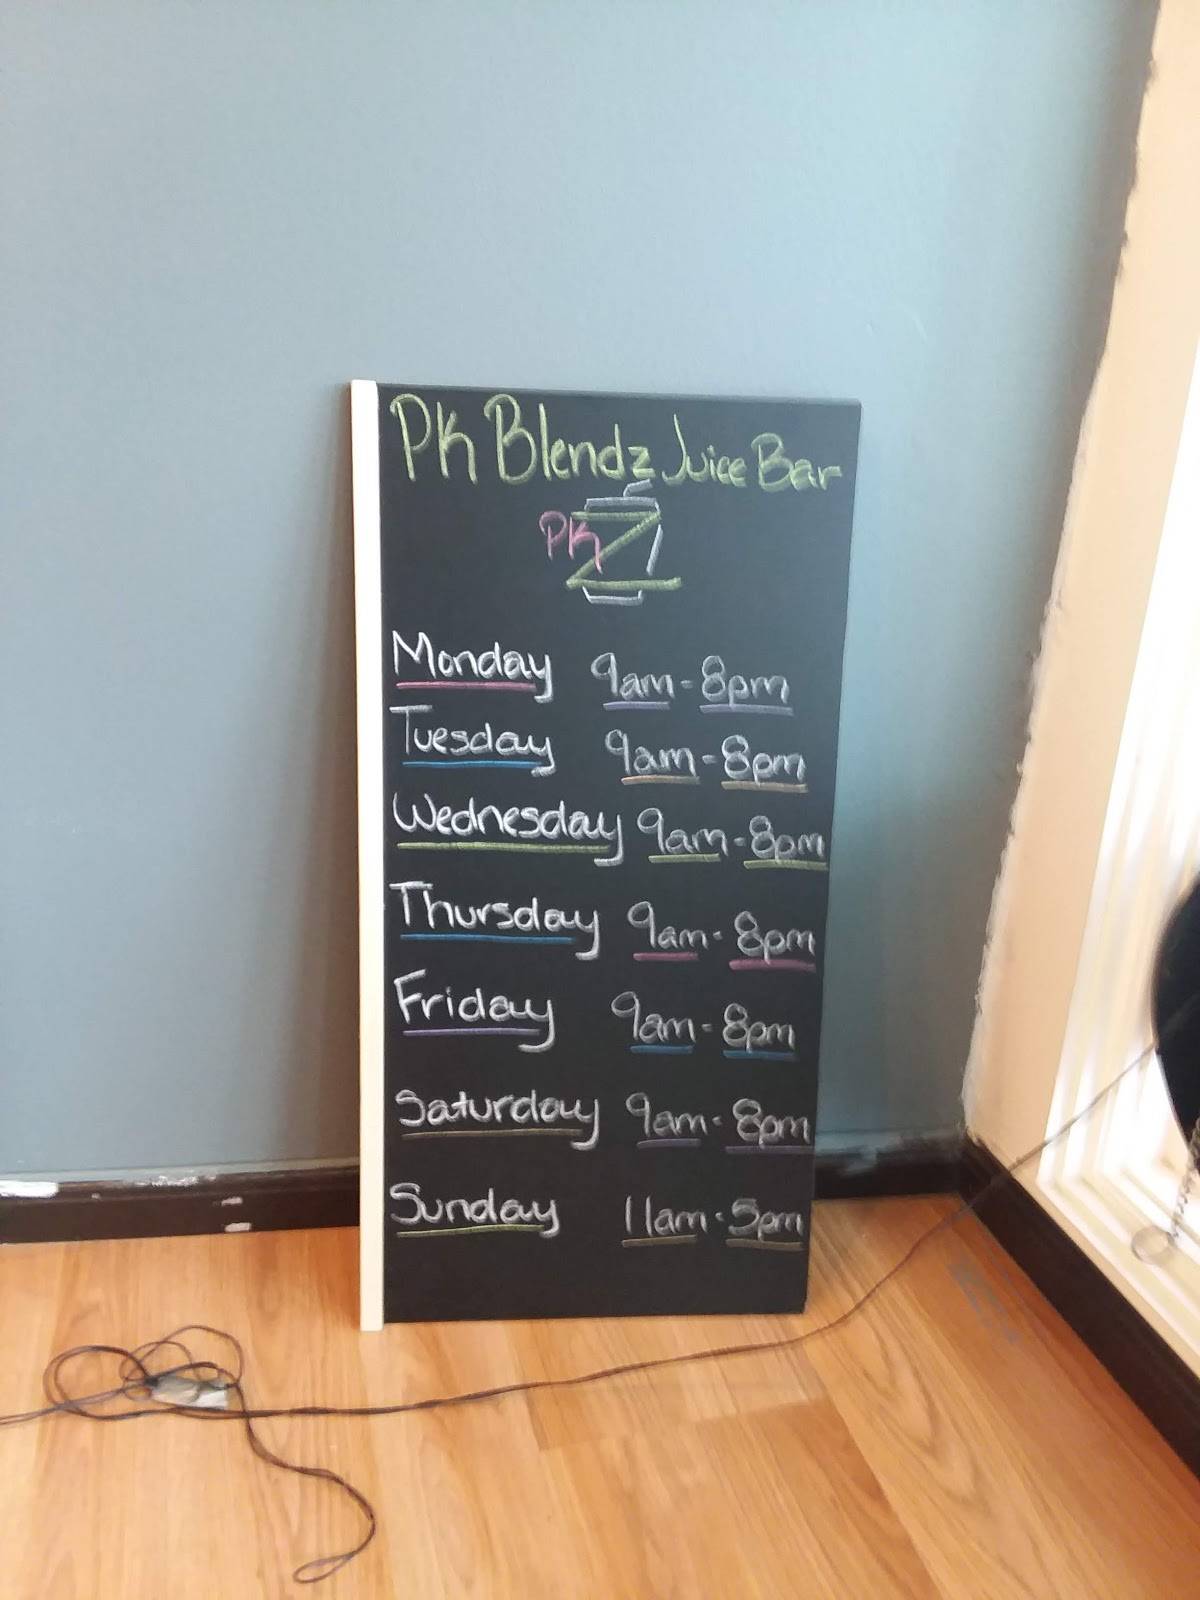 PK Blendz Juice Bar
PK Z
Monday 9am - 8pm
Tuesday 9am - 8pm
Wednesday 9am - 8pm
Thursday 9am - 8pm
Friday 9am - 8pm
Saturday 9am - 8pm
Sunday 11am - 5pm